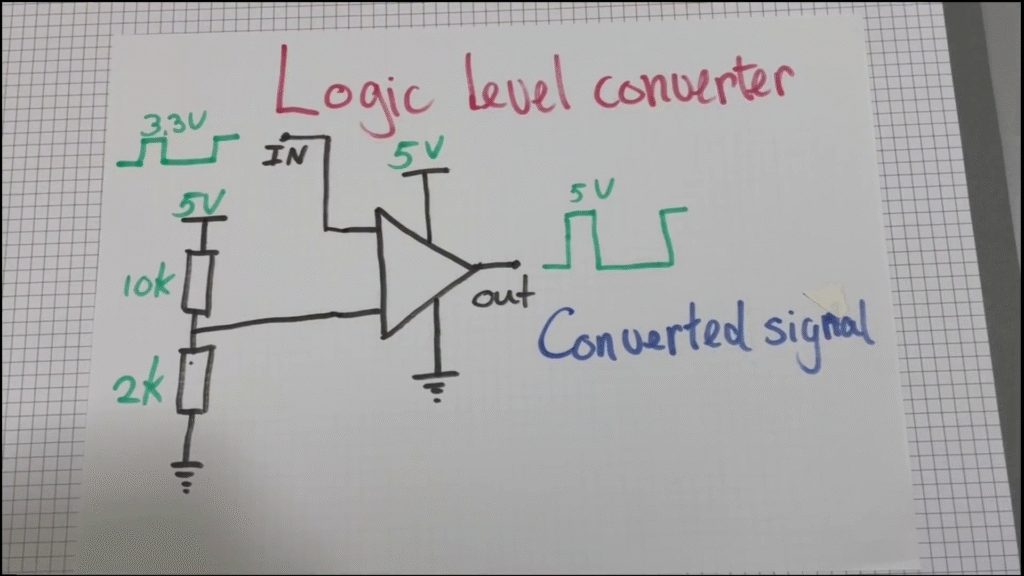 Logic level converter
3.3V
IN
5V
5V
5V
10k
out
2k
Converted signal